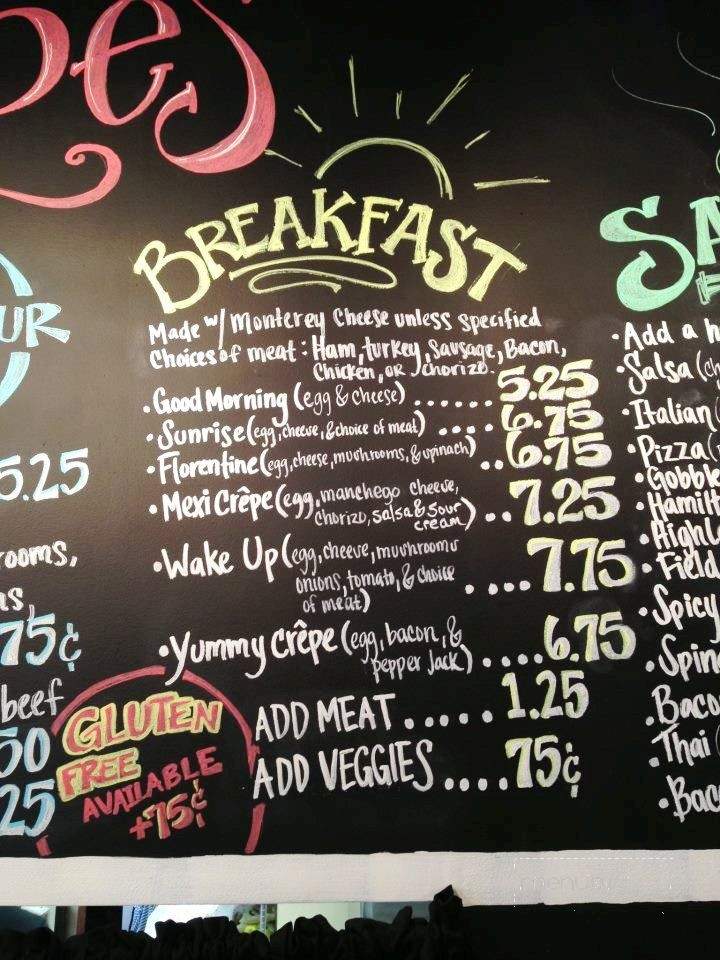 BREAKFAST
Made w/ Monterey Cheese unless specified
Choices of meat: Ham, turkey, Sausage, Bacon,
Chicken, OR Chorizo.
• Good Morning (egg & cheese) ...... 5.25
• Sunrise (egg, cheese, & choice of meat) .... 6.75
• Florentine (egg, cheese, mushrooms, & spinach) .. 6.75
• Mexi Crêpe (egg, manchego cheese,
chorizo, salsa & sour
cream) .. 7.25
• Wake Up (egg, cheese, mushrooms
onions, tomato, & choice
of meat) .... 7.75
• Yummy Crêpe (egg, bacon, &
pepper Jack) .... 6.75
ADD MEAT ..... 1.25
ADD VEGGIES .... 75¢
GLUTEN
FREE
AVAILABLE
+75¢
UR
5.25
rooms,
75¢
beef
50
25
SA
• Add a h
• Salsa (ch
• Italian
• Pizza (
• Gobble
• Hamilt
• Highl
• Field
• Spicy
• Spin
• Baco
• Thai (
• Bac